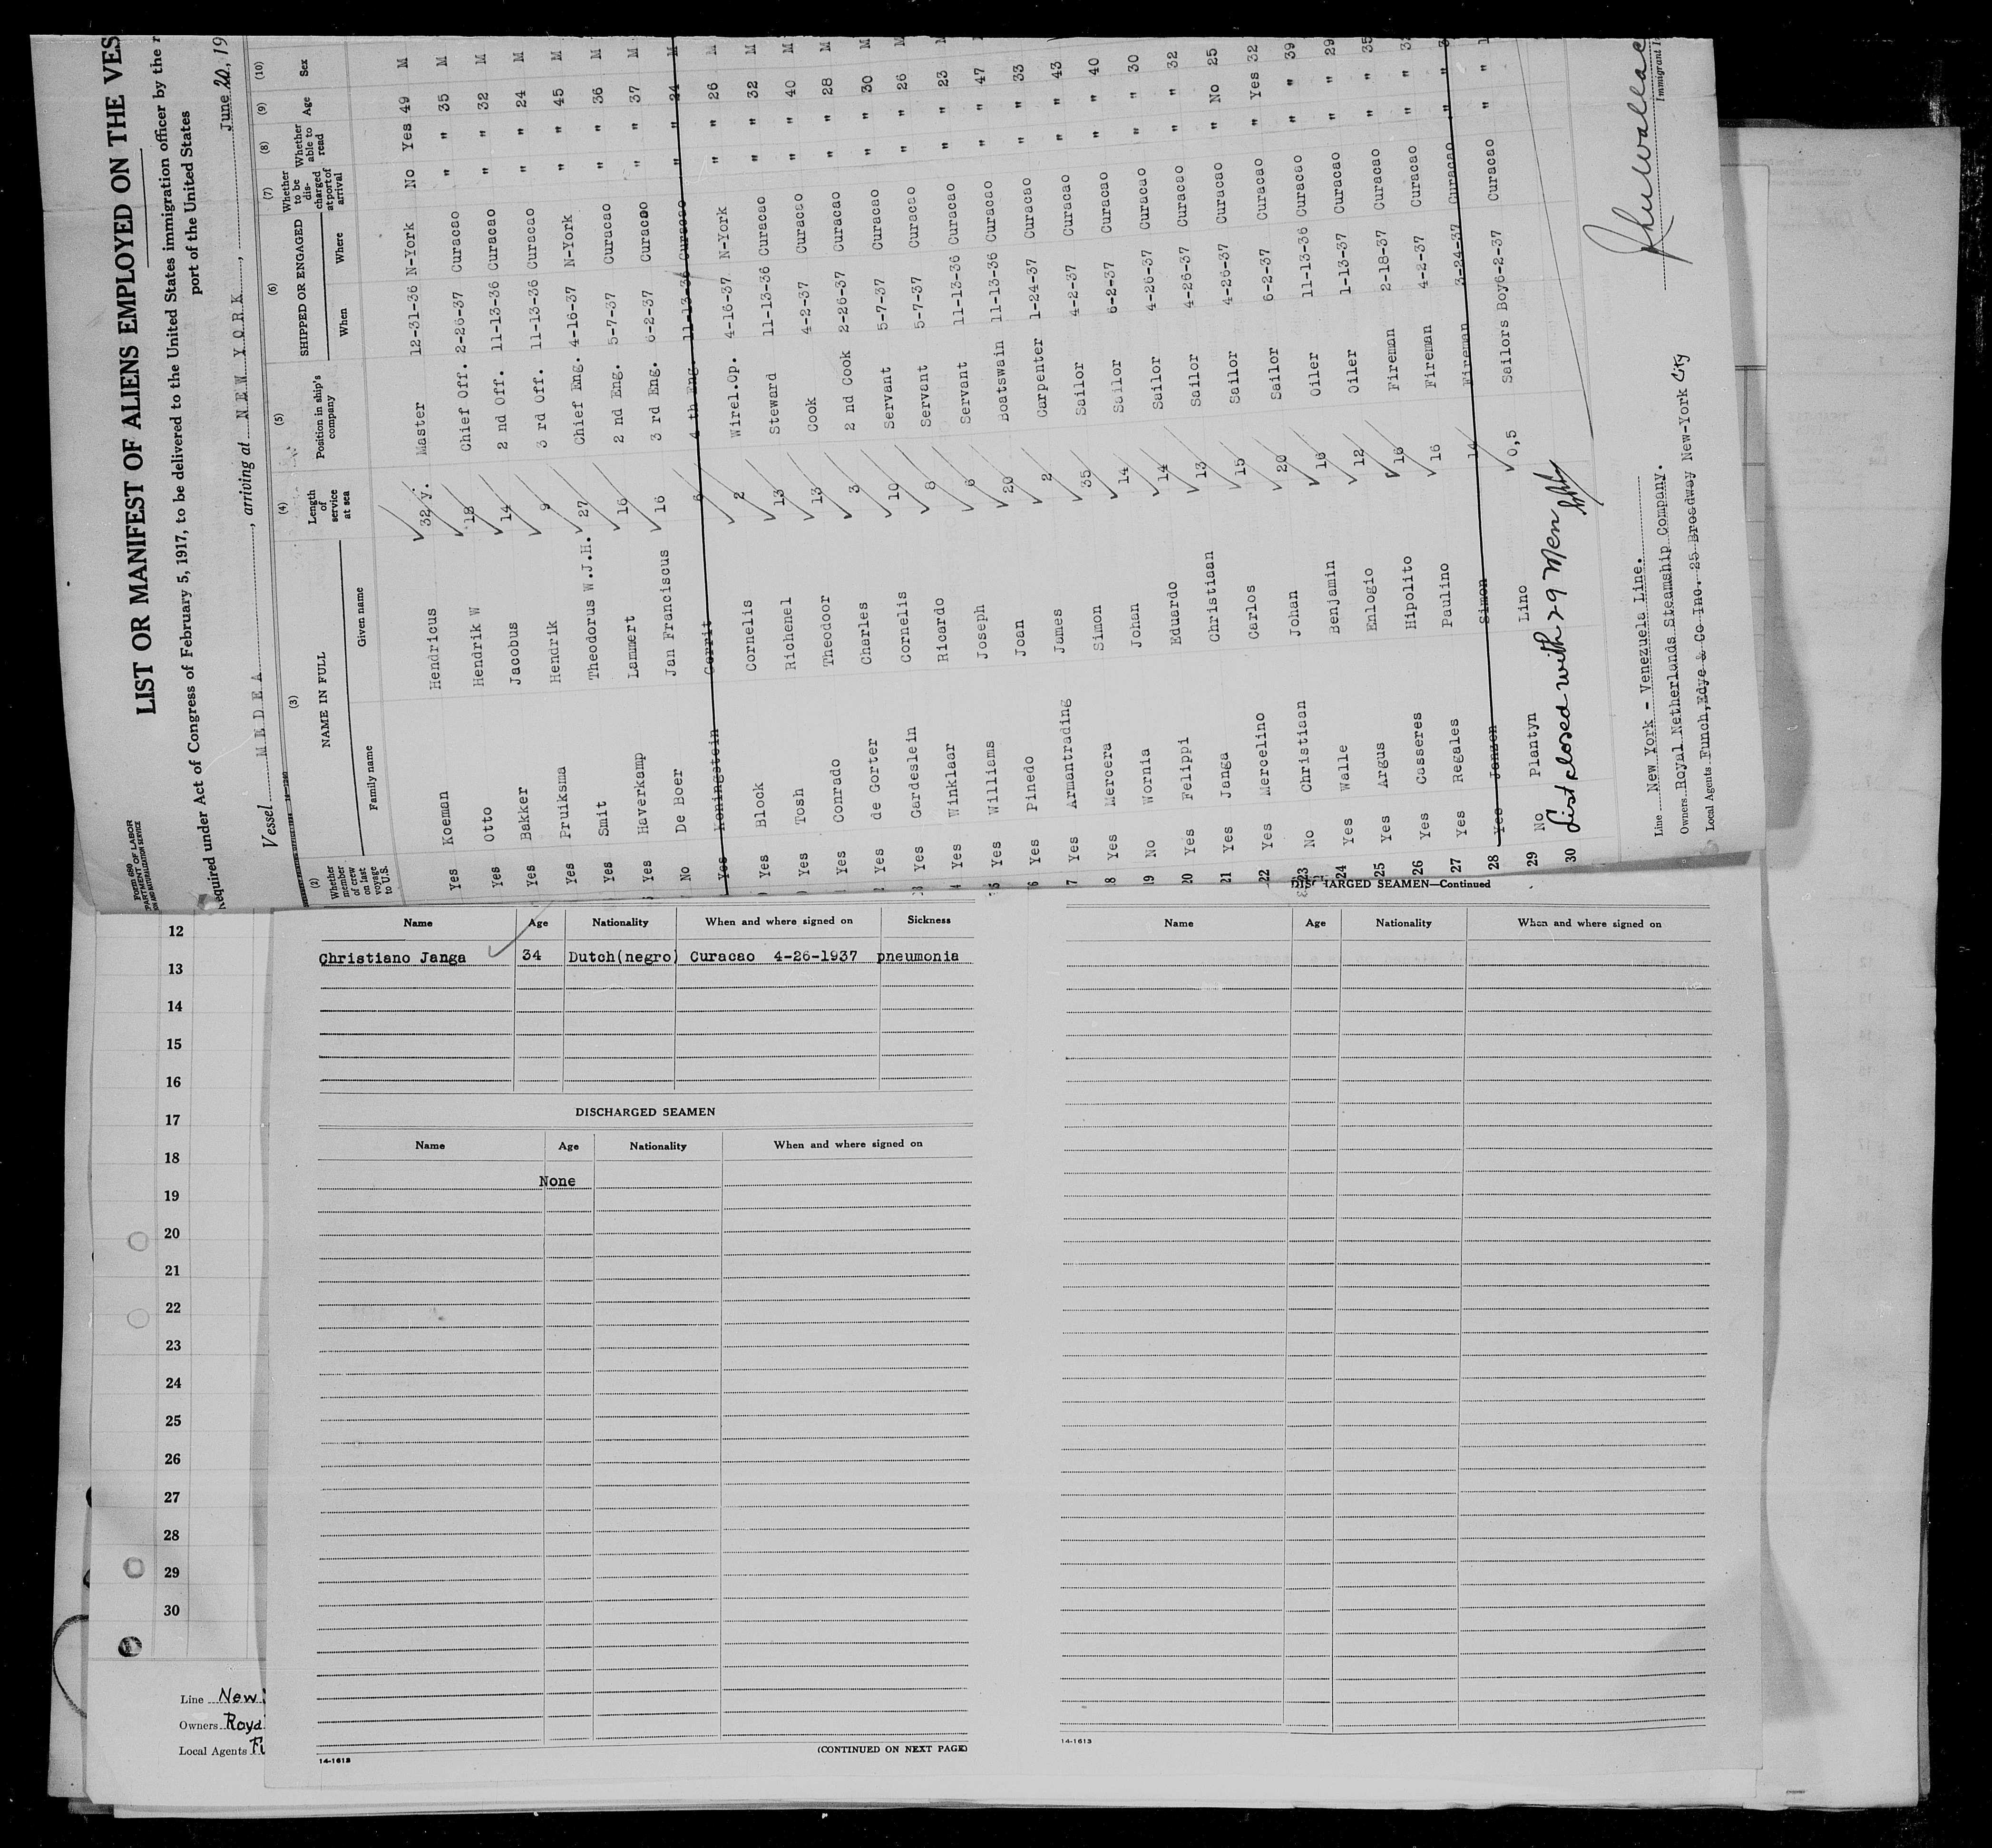 Form 680
DEPARTMENT OF LABOR
LIST OR MANIFEST OF ALIENS EMPLOYED ON THE VES
Required under Act of Congress of February 5, 1917, to be delivered to the United States immigration officer by the
port of the United States
Vessel MEDEA, arriving at NEW YORK, June 20, 19
(2) (3) (4) (5) (6) (7) (8) (9) (10)
Whether member of crew on last voyage to U.S. NAME IN FULL Family name Given name Length of service at sea Position in ship's company SHIPPED OR ENGAGED When Where Whether to be discharged at port of arrival Whether able to read Age Sex
Yes Koeman Hendricus 32 y. Master 12-31-36 N-York No Yes 49 M
Yes Otto Hendrik W 18 Chief Off. 2-26-37 Curacao " " 35 M
Yes Bakker Jacobus 14 2 nd Off. 11-13-36 Curacao " " 32 M
Yes Pruiksma Hendrik 9 3 rd Off. 11-13-36 Curacao " " 24 M
Yes Smit Theodorus W.J.H. 27 Chief Eng. 4-16-37 N-York " " 45 M
Yes Haverkamp Lammert 16 2 nd Eng. 5-7-37 Curacao " " 36 M
No De Boer Jan Franciscus 16 3 rd Eng. 6-2-37 Curacao " " 37 M
Yes Koningstein Gerrit 6 4 th Eng. 11-13-36 Curacao " " 24 M
Yes Block Cornelis 2 Wirel.Op. 4-16-37 N-York " " 26 M
Yes Tosh Richenel 13 Steward 11-13-36 Curacao " " 32 M
Yes Conrado Theodoor 13 Cook 4-2-37 Curacao " " 40 M
Yes de Gorter Charles 3 2 nd Cook 2-26-37 Curacao " " 28 M
Yes Gardeslein Cornelis 10 Servant 5-7-37 Curacao " " 30 M
Yes Winklaar Ricardo 8 Servant 5-7-37 Curacao " " 26 M
Yes Williams Joseph 6 Servant 11-13-36 Curacao " " 23
Yes Pinedo Joan 20 Boatswain 11-13-36 Curacao " " 47
Yes Armantrading James 2 Carpenter 1-24-37 Curacao " " 33
Yes Mercera Simon 35 Sailor 4-2-37 Curacao " " 43
No Wornia Johan 14 Sailor 6-2-37 Curacao " " 40
20 Yes Felippi Eduardo 14 Sailor 4-26-37 Curacao " " 30
21 Yes Janga Christiaan 13 Sailor 4-26-37 Curacao " " 32
22 Yes Mercelino Carlos 15 Sailor 4-26-37 Curacao " No 25
23 No Christiaan Johan 20 Sailor 6-2-37 Curacao " Yes 32
24 Yes Walle Benjamin 16 Oiler 11-13-36 Curacao " " 39
25 Yes Argus Enlogio 12 Oiler 1-13-37 Curacao " " 29
26 Yes Casseres Hipolito 16 Fireman 2-18-37 Curacao " " 35
27 Yes Regales Paulino 16 Fireman 4-2-37 Curacao " "
28 Yes Janzen Simon 14 Fireman 3-24-37 Curacao " "
29 No Plantyn Lino 0,5 Sailors Boy 6-2-37 Curacao " "
30 List closed with 29 Men
Line New York - Venezuela Line.
Owners Royal Netherlands Steamship Company.
Local Agents Funch,Edye & Co Inc. 25 Broadway New-York City
Immigrant
Name Age Nationality When and where signed on Sickness
Christiano Janga 34 Dutch(negro) Curacao 4-26-1937 pneumonia
DISCHARGED SEAMEN
Name Age Nationality When and where signed on
None
14-1613
(CONTINUED ON NEXT PAGE)
DISCHARGED SEAMEN—Continued
Name Age Nationality When and where signed on
14-1613
12
13
14
15
16
17
18
19
20
21
22
23
24
25
26
27
28
29
30
Line New
Owners Roya
Local Agents